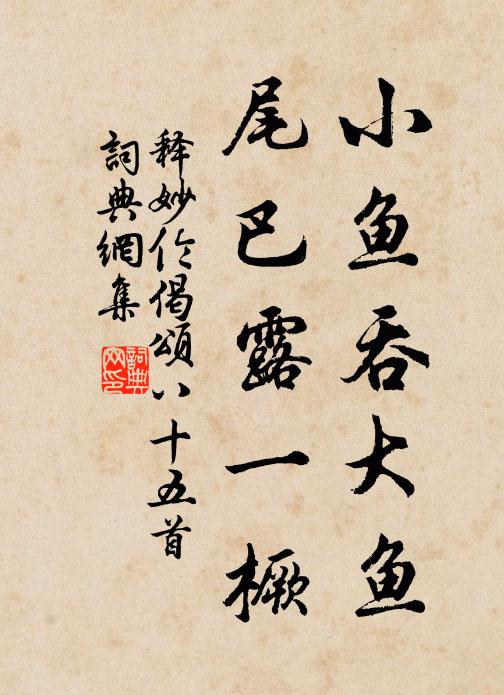 小鱼吞大鱼
尾巴露一橛
释妙伦偈頌八十五首
詞典網集
詞典网印